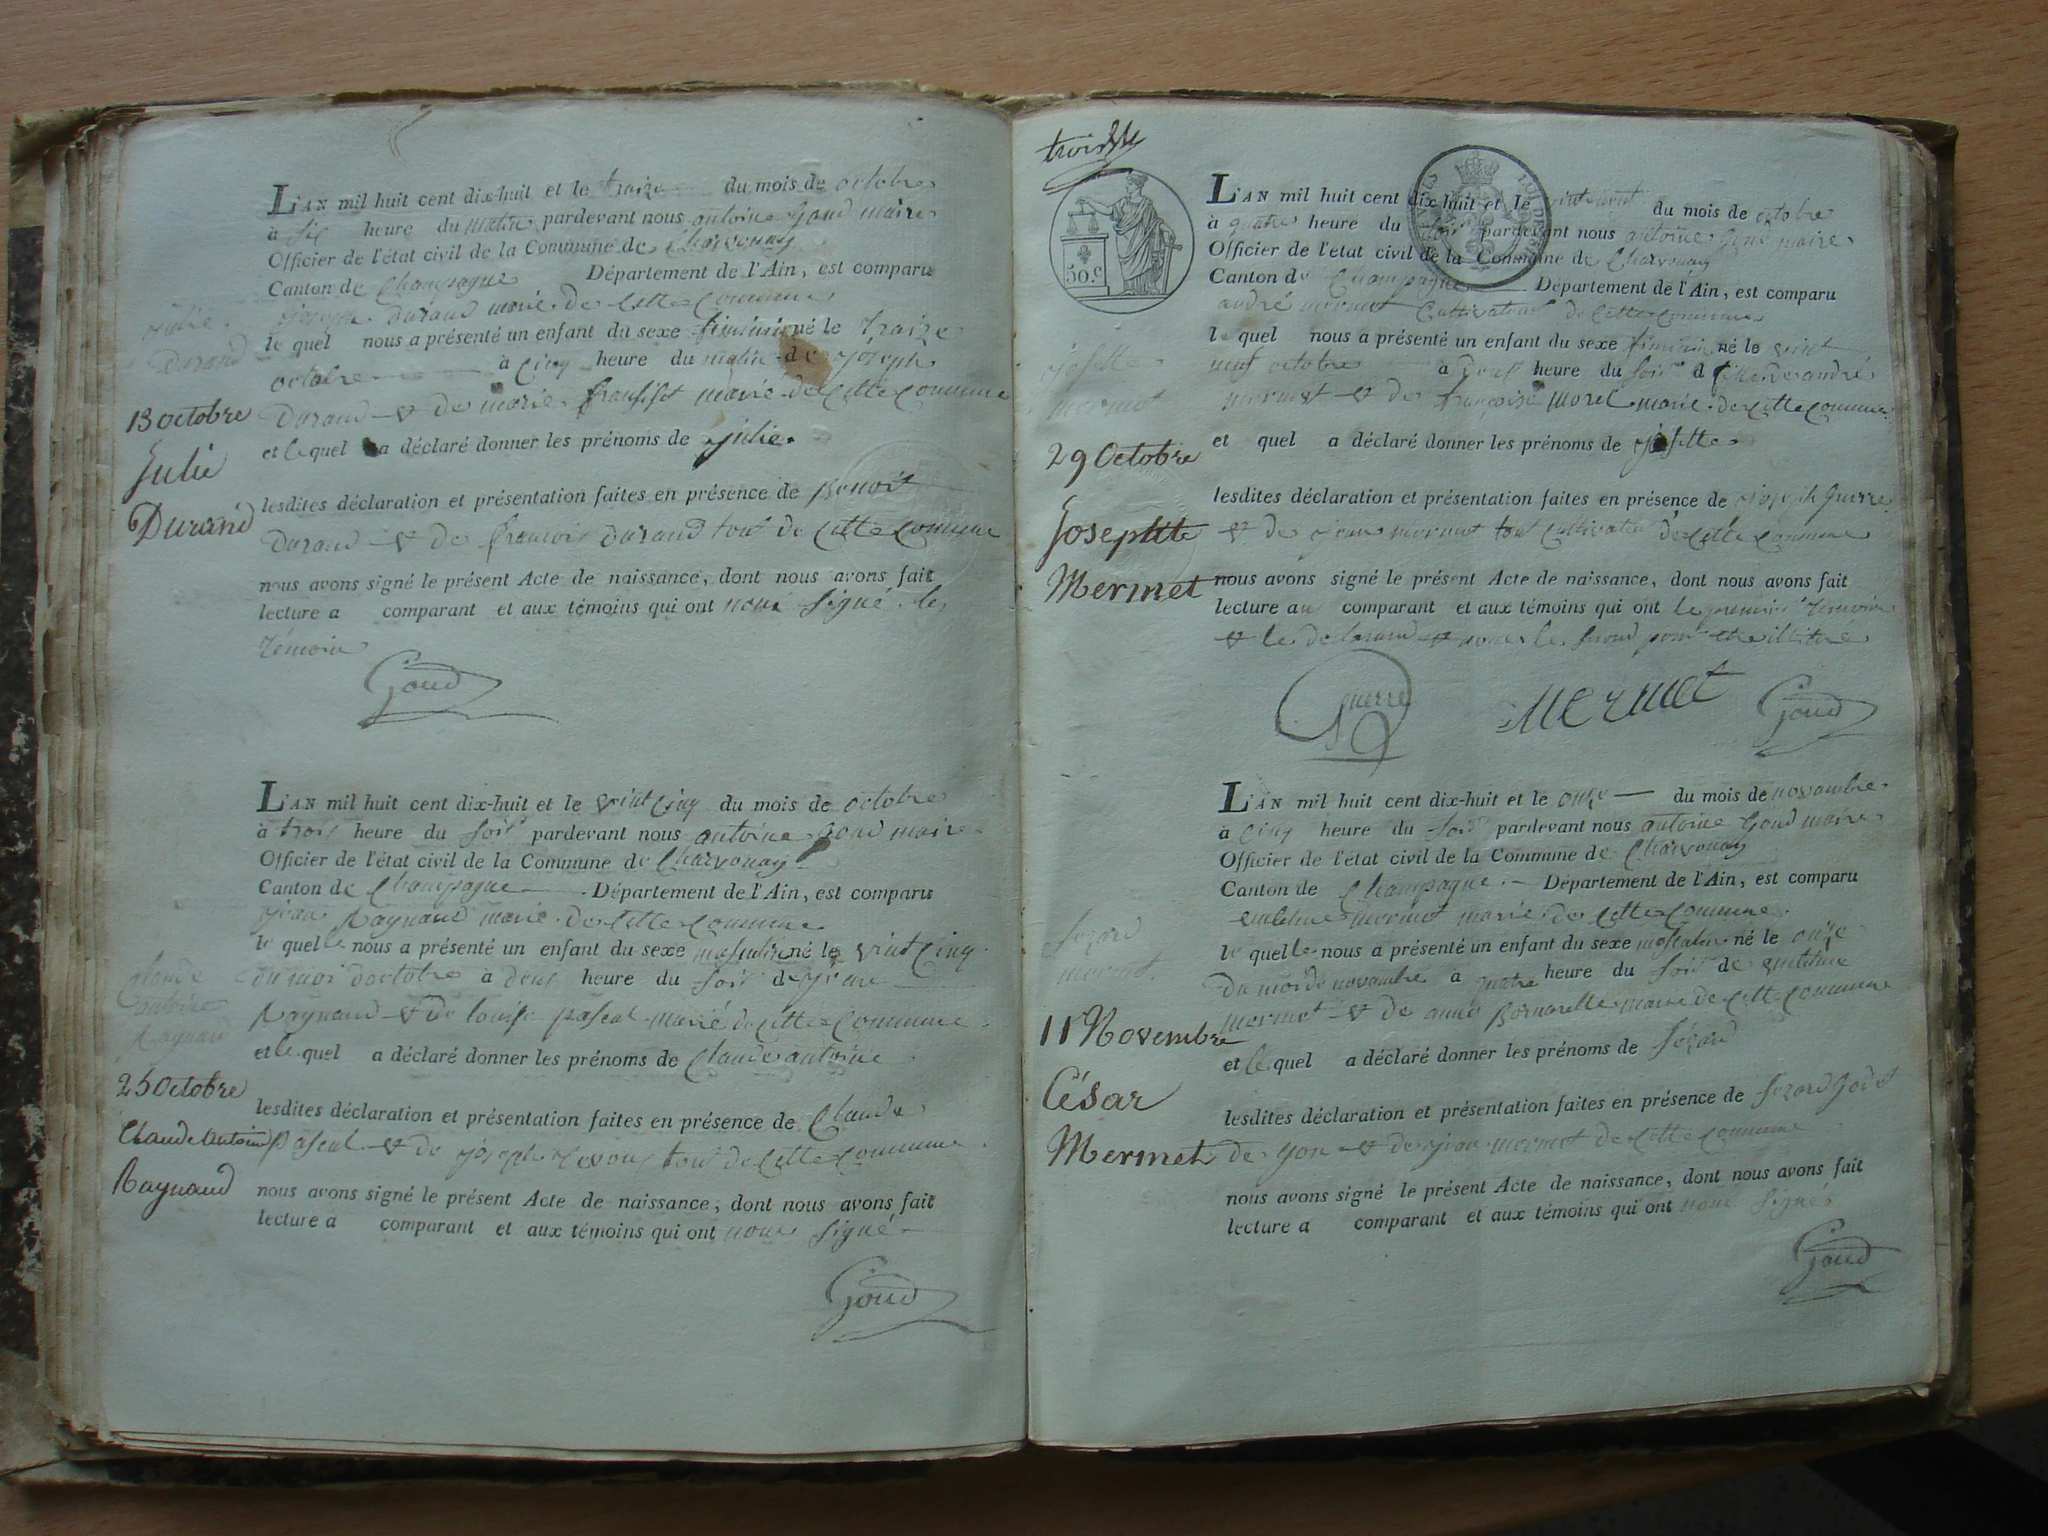 L'AN mil huit cent dix-huit et le traize du mois de octobre
à six heure du matin pardevant nous antoine Goud maire
Officier de l'état civil de la Commune de Charvonay
Canton de Champagne Département de l'Ain, est comparu
joseph durand marié de cette commune
le quel nous a présenté un enfant du sexe feminin né le traize
octobre à cinq heure du matin de joseph
Durand et de marie fransist marié de cette commune
et le quel a déclaré donner les prénoms de julie
lesdites déclaration et présentation faites en présence de Benoit
Durand et de francois durand tout de cette commune
nous avons signé le présent Acte de naissance, dont nous avons fait
lecture a comparant et aux témoins qui ont non signé les
témoin
Goud
julie
Durand
13 octobre
Julie
Durand
L'AN mil huit cent dix-huit et le vint cinq du mois de octobre
à trois heure du soir pardevant nous antoine Goud maire
Officier de l'état civil de la Commune de Charvonay
Canton de Champagne Département de l'Ain, est comparu
Raynaud marié de cette commune
le quelle nous a présenté un enfant du sexe masculin né le vint cinq
du moi doctobre à deux heure du soir de
Raynaud et de louise pascal marié de cette commune
et le quel a déclaré donner les prénoms de Claude antoine
lesdites déclaration et présentation faites en présence de Claude
pascal et de joseph tout de cette commune
nous avons signé le présent Acte de naissance, dont nous avons fait
lecture a comparant et aux témoins qui ont non signé
Goud
Claude
antoine
Raynaud
25 Octobre
Claude Antoine
Raynaud
trois
50 c.
L'AN mil huit cent dix-huit et le vint neuf du mois de octobre
à quatre heure du soir pardevant nous antoine Goud maire
Officier de l'état civil de la Commune de Charvonay
Canton de Champagne Département de l'Ain, est comparu
andré mermet cultivateur de cette commune
le quel nous a présenté un enfant du sexe feminin né le vint
neuf octobre à deux heure du soir de andré
mermet et de françoise morel marié de cette commune
et quel a déclaré donner les prénoms de josette
lesdites déclaration et présentation faites en présence de joseph Guerre
et de jean mermet tout cultivateur de cette commune
nous avons signé le présent Acte de naissance, dont nous avons fait
lecture au comparant et aux témoins qui ont le premier témoin
et le declarand et non le segond pour etre illitré
Guerre Mermet Goud
josette
mermet
29 Octobre
Josephte
Mermet
L'AN mil huit cent dix-huit et le onze du mois de novembre
à cinq heure du soir pardevant nous antoine Goud maire
Officier de l'état civil de la Commune de Charvonay
Canton de Champagne Département de l'Ain, est comparu
mermet marié de cette commune
le quelle nous a présenté un enfant du sexe masculin né le onze
du mois de novembre à quatre heure du soir de
mermet et de anne marié de cette commune
et le quel a déclaré donner les prénoms de sézard
lesdites déclaration et présentation faites en présence de sezard
de yon et de jean mermet de cette commune
nous avons signé le présent Acte de naissance, dont nous avons fait
lecture a comparant et aux témoins qui ont non signé
Goud
sezard
mermet
11 Novembre
César
Mermet